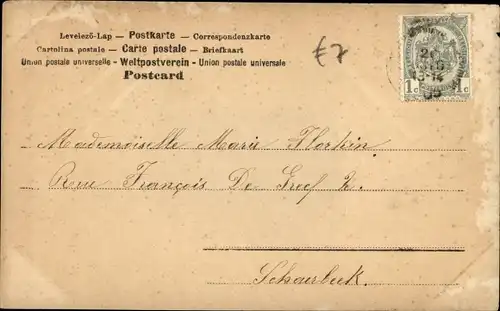 Levelező-Lap — Postkarte — Correspondenzkarte
Cartolina postale — Carte postale — Briefkaart
Union postale universelle - Weltpostverein - Union postale universale
Postcard
£7
1c 1c
Mademoiselle Marie Florkin
Rue François De Greef 2.
Schaerbeek.